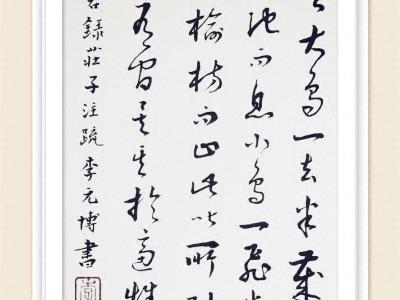 大鳥一去半歲
池而息小鳥一飛半
榆枋而止此比所
有間矣其於適性
錄莊子注疏 李元博書